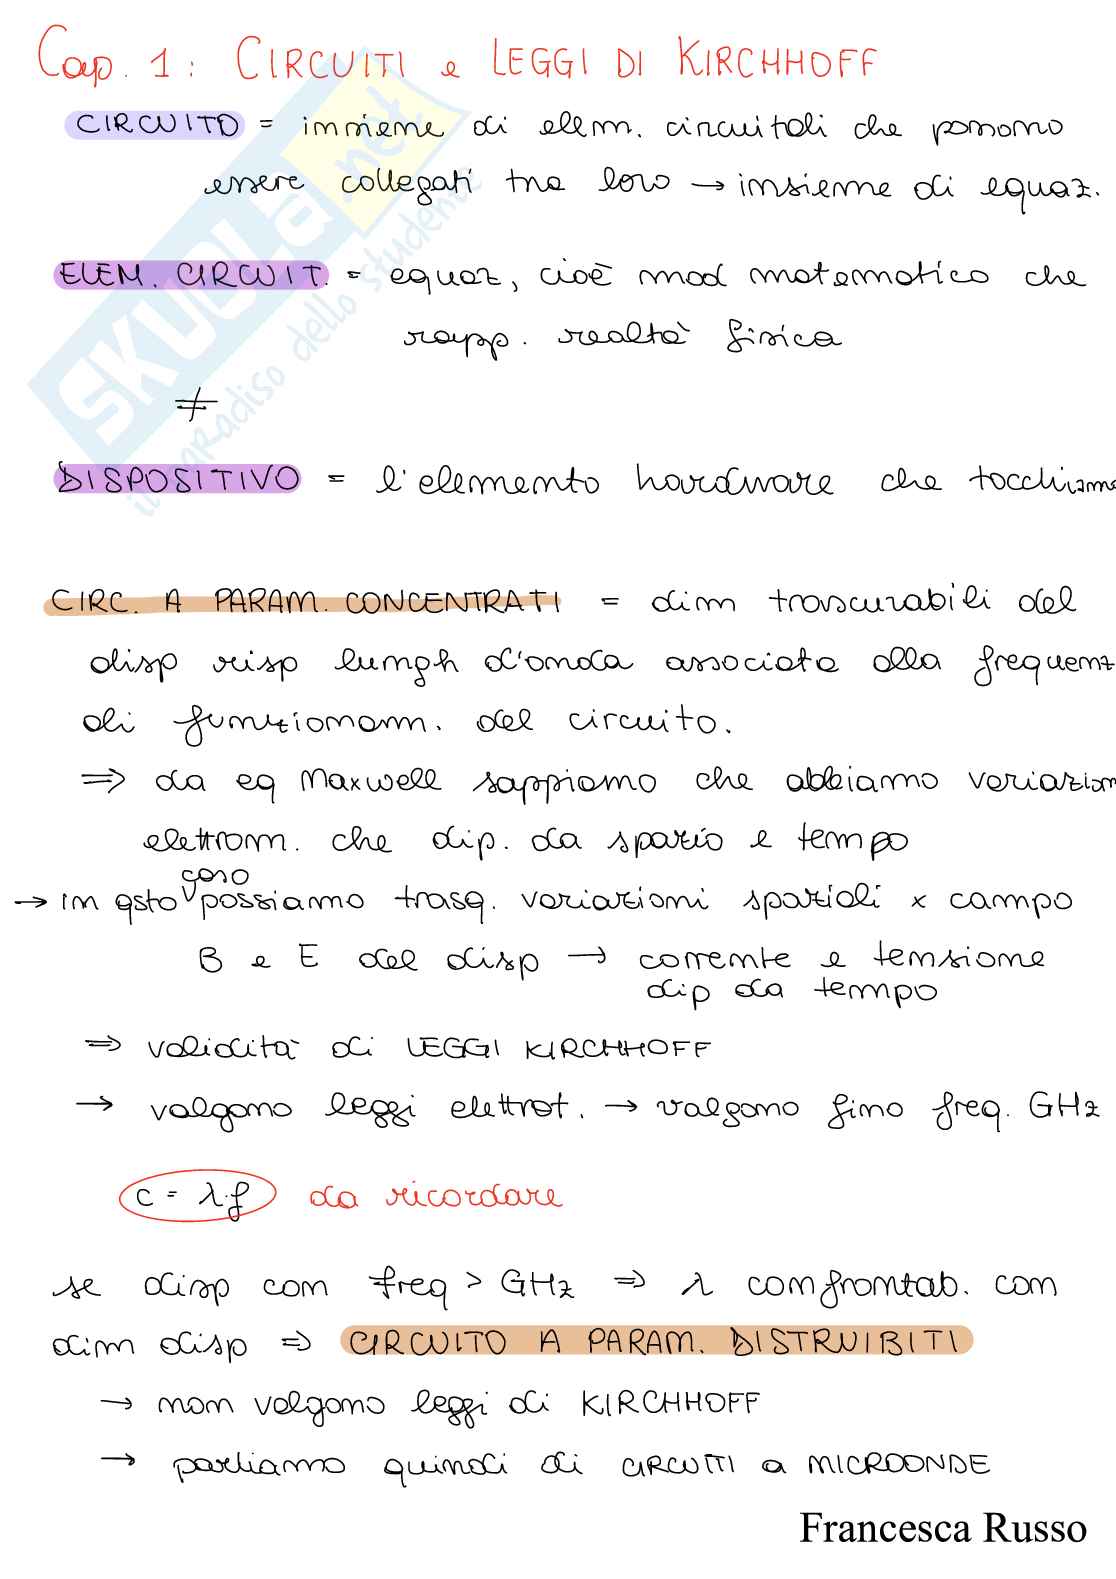 Cap. 1: CIRCUITI e LEGGI DI KIRCHHOFF
CIRCUITO = insieme di elem. circuitali che possono
essere collegati tra loro → insieme di equaz.
ELEM. CIRCUIT. = equaz, cioè mod matematico che
rapp. realtà fisica
≠
DISPOSITIVO = l'elemento hardware che tocchiamo
CIRC. A PARAM. CONCENTRATI = dim trascurabili del
disp risp lungh d'onda associata alla frequenz
di funzionam. del circuito.
⇒ da eq Maxwell sappiamo che abbiamo variazion
elettrom. che dip. da spazio e tempo
caso
→ in qsto ∨ possiamo trasq. variazioni spaziali x campo
B e E del disp → corrente e tensione
dip da tempo
⇒ validità di LEGGI KIRCHHOFF
→ valgono leggi elettrot. → valgono fino freq. GHz
c = λ·f da ricordare
se disp con freq > GHz ⇒ λ confrontab. con
dim disp ⇒ CIRCUITO A PARAM. DISTRUIBITI
→ non valgono leggi di KIRCHHOFF
→ parliamo quindi di CIRCUITI a MICROONDE
Francesca Russo
SKUOLA.net
il paradiso dello studente